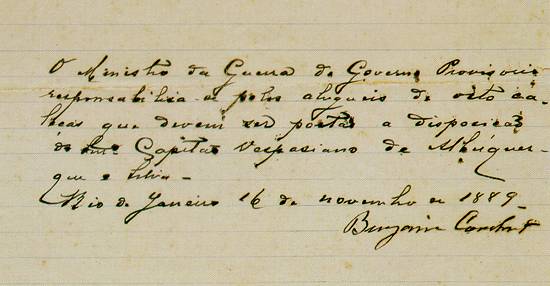 O Ministro da Guerra do Governo Provisorio
responsabilisa-se pelos alugueis de oito ca-
leças que devem ser postas a disposição
do Capitão Vespasiano de Albuquer-
que e Silva -
Rio de Janeiro 16 de novembro de 1889 -
Benjamin Constant